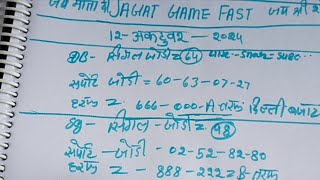 जय माता दी JAGAT GAME FAST जय श्री
12- अक्टुवर - 2024
DB- सिंगल जोडी = 64
सपोर्ट जोडी = 60-63-07-27
हरूफ = 666-000-A तरफ
सिंगल - जोडी = 98
सपोर्ट - जोडी - 02-52-82-80
हरूफ = - 888-222= B- तरफ